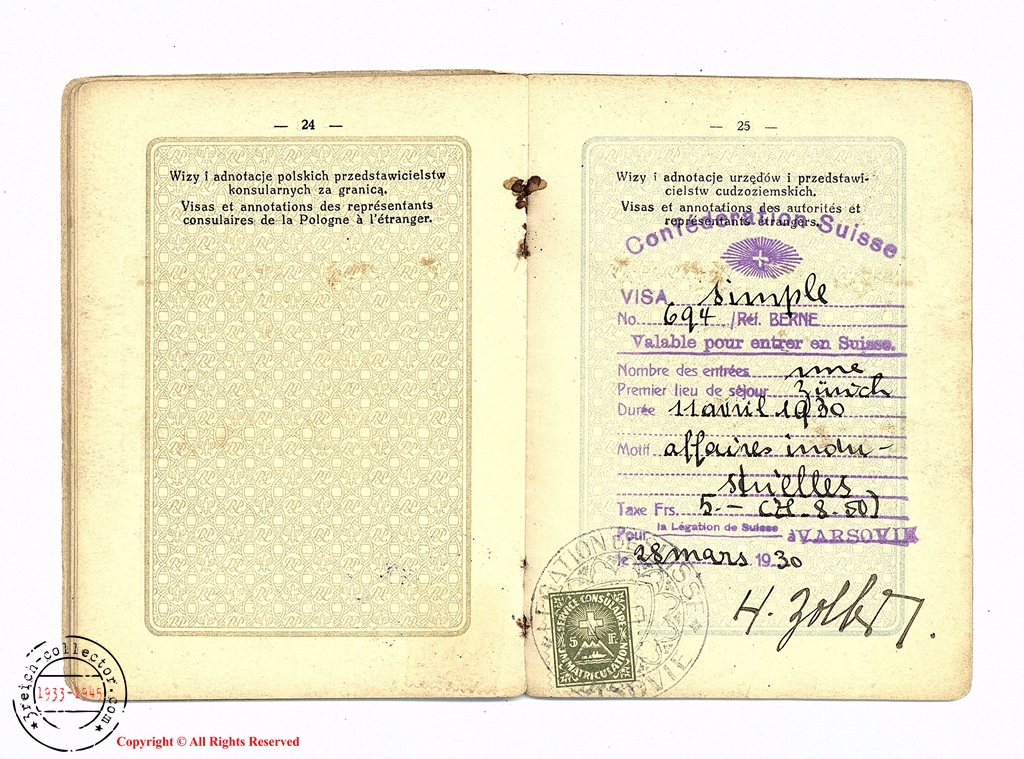 — 24 —
Wizy i adnotacje polskich przedstawicielstw
konsularnych za granicą.
Visas et annotations des représentants
consulaires de la Pologne à l'étranger.
— 25 —
Wizy i adnotacje urzędów i przedstawi-
cielstw cudzoziemskich.
Visas et annotations des autorités et
représentants étrangers.
Confédération Suisse
VISA simple
No. 694 /Réf. BERNE
Valable pour entrer en Suisse.
Nombre des entrées une
Premier lieu de séjour Zürich
Durée 11 avril 1930
Motif affaires indu-
strielles
Taxe Frs. 5.- (Zł. 8.50)
Pour la Légation de Suisse à VARSOVIE
le 28 mars 1930
LEGATION DE SUISSE
VARSOVIE
SERVICE CONSULAIRE
5 Fr.
IMMATRICULATION
3reich-collector.com
1933-1945
Copyright © All Rights Reserved